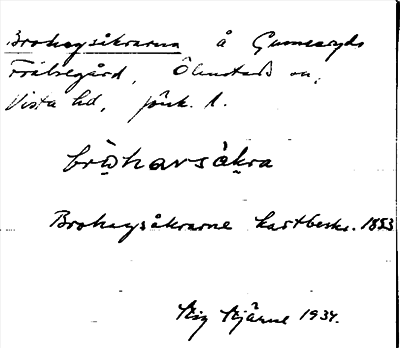 Brohagsåkrarna å Gunnarryds
Frälsegård, Ölmstads sn,
Vista hd, Jönk. l.
brōhavsåkra
Brohagsåkrarne kartbeskr. 1853
Stig Stjärne 1934.